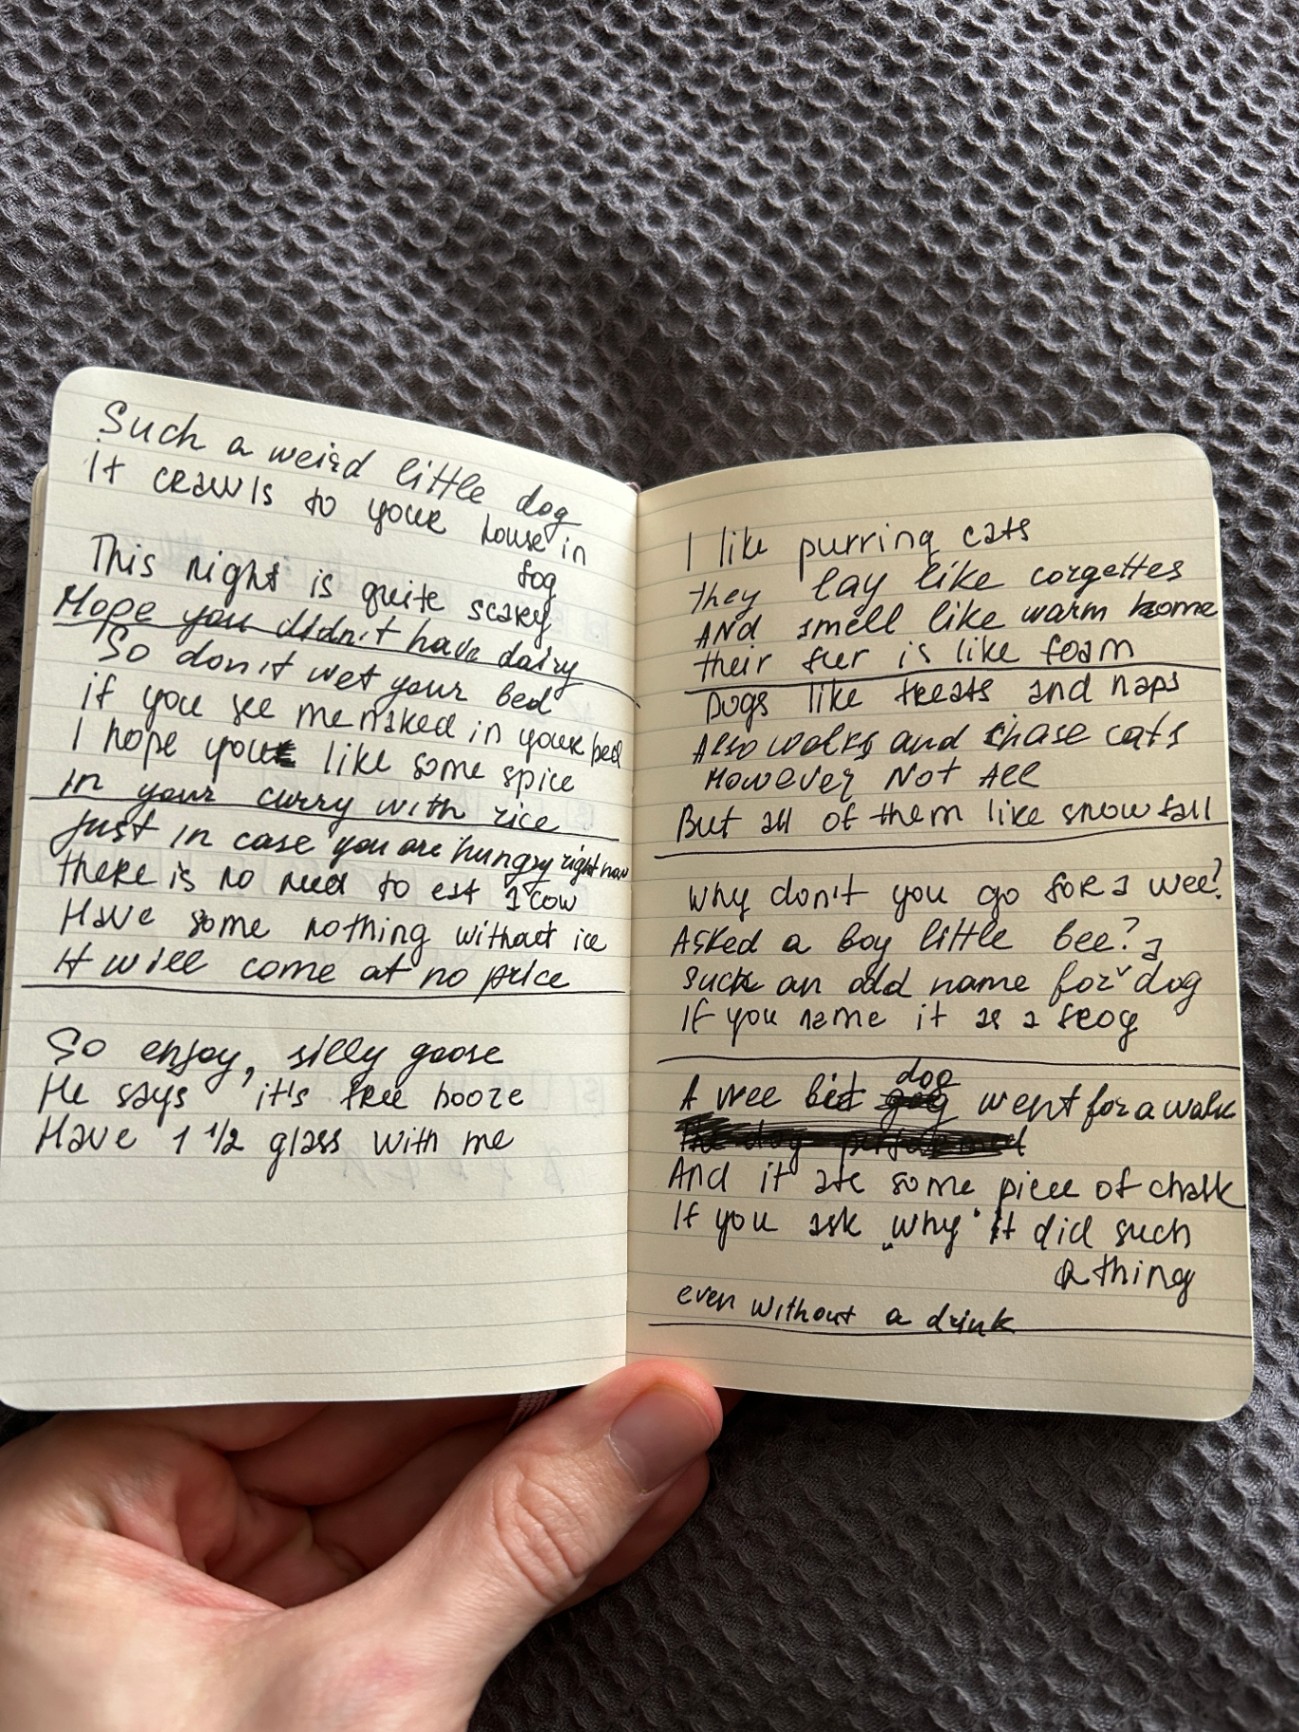 Such a weird little dog
It crawls to your house in
fog
This night is quite scary
Hope you didn't have dairy
So don't wet your bed
if you see me naked in your bed
I hope you like some spice
in your curry with rice
Just in case you are hungry right now
there is no need to eat a cow
Have some nothing without ice
It will come at no price
So enjoy, silly goose
He says, it's free booze
Have 1 1/2 glass with me
I like purring cats
they lay like corgettes
And smell like warm home
their fur is like foam
Dogs like treats and naps
Also walks and chase cats
However Not All
But all of them like snowfall
Why don't you go for a wee?
Asked a boy little bee?
Such an odd name for a dog
If you name it as a frog
A wee bit dog went for a walk
And it ate some piece of chalk
If you ask „why“ it did such
a thing
even without a drink